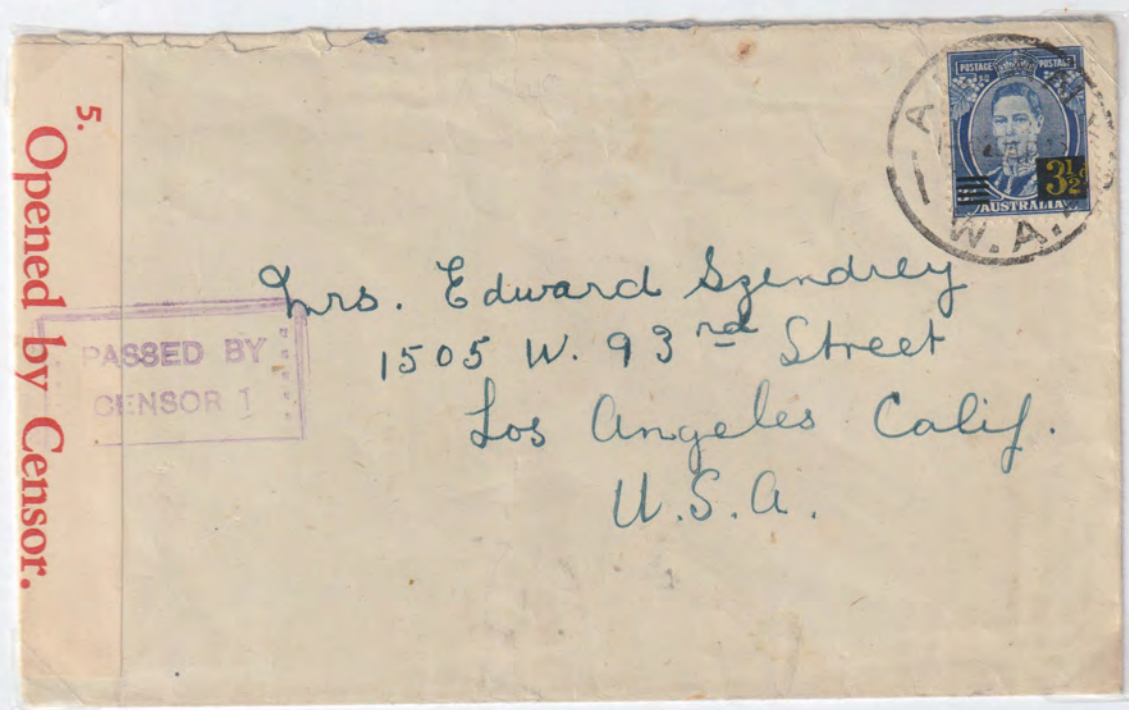 5.
Opened by Censor.
PASSED BY
CENSOR 1
POSTAGE POSTAGE
3½d
AUSTRALIA
W.A.
Mrs. Edward Szendrey
1505 W. 93rd Street
Los Angeles Calif.
U.S.A.